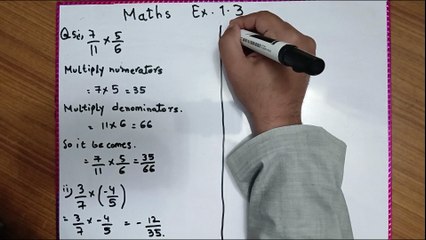 Maths Ex. 1.3
Q5 i, 7/11 × 5/6
Multiply numerators
= 7 × 5 = 35
Multiply denominators.
= 11 × 6 = 66
So it becomes.
= 7/11 × 5/6 = 35/66
ii) 3/7 × (-4/5)
= 3/7 × -4/5 = - 12/35.